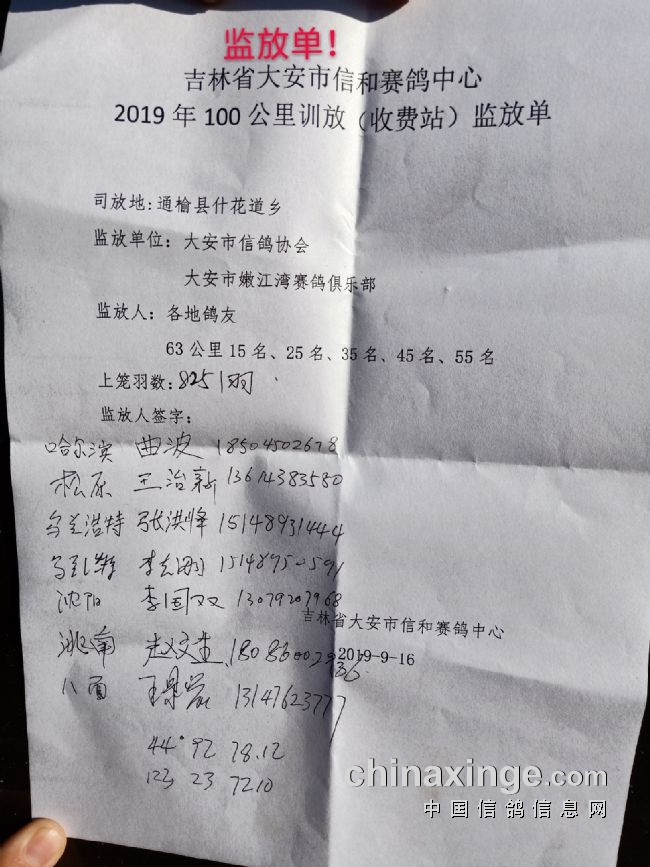 监放单!
吉林省大安市信和赛鸽中心
2019 年 100 公里训放（收费站）监放单
司放地:通榆县什花道乡
监放单位：大安市信鸽协会
大安市嫩江湾赛鸽俱乐部
监放人：各地鸽友
63 公里 15 名、25 名、35 名、45 名、55 名
上笼羽数:8251羽
监放人签字：
哈尔滨 曲波 18504502678
松原 王治新 13614383580
乌兰浩特 张洪峰 15148931444
李 1514895
沈阳 李国双 13079207968
吉林省大安市信和赛鸽中心
洮南 赵文生
2019-9-16
八面 13147623777
44° 92 78.12
123 23 7210
chinaxinge.com
中国信鸽信息网